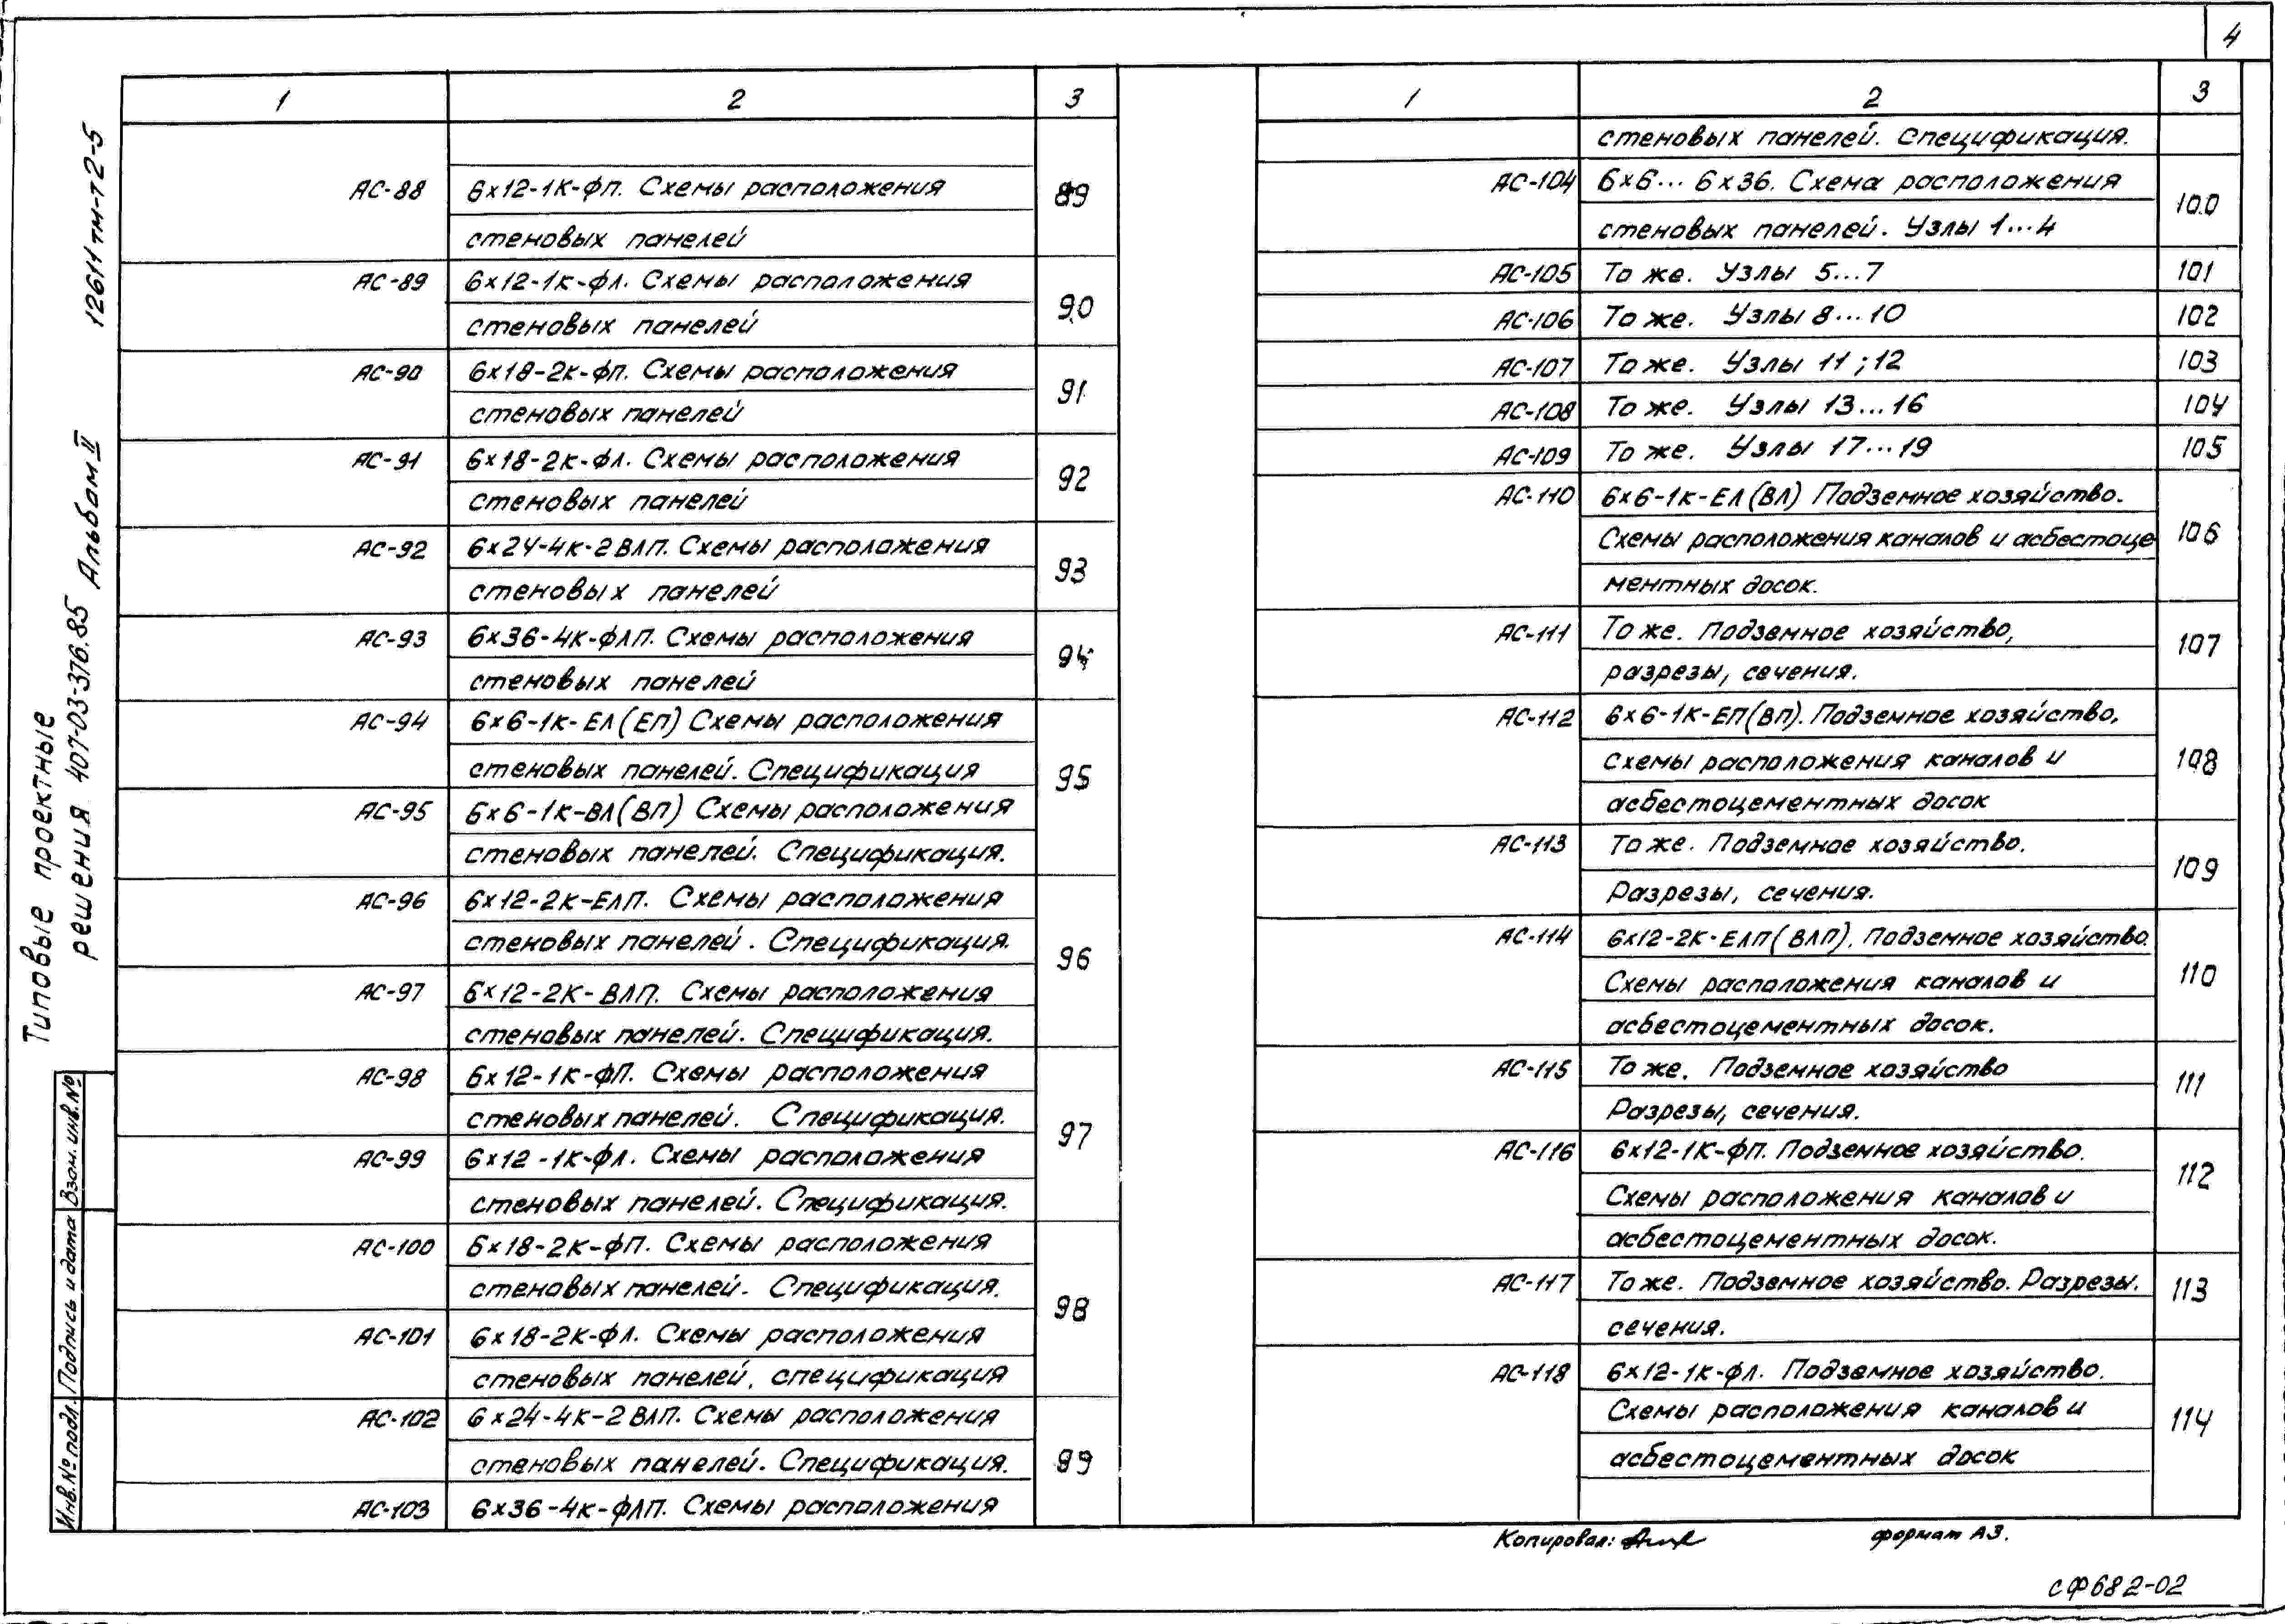 4
Типовые проектные
решения 407-03-376.85 Альбом II 12611тм-т2-5
1 2 3
АС-88 6х12-1К-ФП. Схемы расположения 89
стеновых панелей
АС-89 6х12-1К-ФЛ. Схемы расположения 90
стеновых панелей
АС-90 6х18-2К-ФП. Схемы расположения 91
стеновых панелей
АС-91 6х18-2К-ФЛ. Схемы расположения 92
стеновых панелей
АС-92 6х24-4К-2ВЛП. Схемы расположения 93
стеновых панелей
АС-93 6х36-4К-ФЛП. Схемы расположения 94
стеновых панелей
АС-94 6х6-1К-ЕЛ(ЕП) Схемы расположения 95
стеновых панелей. Спецификация
АС-95 6х6-1К-ВЛ(ВП) Схемы расположения
стеновых панелей. Спецификация.
АС-96 6х12-2К-ЕЛП. Схемы расположения 96
стеновых панелей. Спецификация.
АС-97 6х12-2К-ВЛП. Схемы расположения
стеновых панелей. Спецификация.
АС-98 6х12-1К-ФП. Схемы расположения 97
стеновых панелей. Спецификация.
АС-99 6х12-1К-ФЛ. Схемы расположения
стеновых панелей. Спецификация.
АС-100 6х18-2К-ФП. Схемы расположения 98
стеновых панелей. Спецификация.
АС-101 6х18-2К-ФЛ. Схемы расположения
стеновых панелей, спецификация
АС-102 6х24-4К-2ВЛП. Схемы расположения 99
стеновых панелей. Спецификация.
АС-103 6х36-4К-ФЛП. Схемы расположения
1 2 3
стеновых панелей. Спецификация.
АС-104 6х6... 6х36. Схема расположения 100
стеновых панелей. Узлы 1...4
АС-105 То же. Узлы 5...7 101
АС-106 То же. Узлы 8...10 102
АС-107 То же. Узлы 11; 12 103
АС-108 То же. Узлы 13...16 104
АС-109 То же. Узлы 17...19 105
АС-110 6х6-1К-ЕЛ(ВЛ) Подземное хозяйство. 106
Схемы расположения каналов и асбестоце
ментных досок.
АС-111 То же. Подземное хозяйство, 107
разрезы, сечения.
АС-112 6х6-1К-ЕП(ВП). Подземное хозяйство, 108
схемы расположения каналов и
асбестоцементных досок
АС-113 То же. Подземное хозяйство. 109
Разрезы, сечения.
АС-114 6х12-2К-ЕЛП(ВЛП). Подземное хозяйство. 110
Схемы расположения каналов и
асбестоцементных досок.
АС-115 То же. Подземное хозяйство 111
Разрезы, сечения.
АС-116 6х12-1К-ФП. Подземное хозяйство. 112
Схемы расположения каналов и
асбестоцементных досок.
АС-117 То же. Подземное хозяйство. Разрезы. 113
сечения.
АС-118 6х12-1К-ФЛ. Подземное хозяйство. 114
Схемы расположения каналов и
асбестоцементных досок
Инв.№ подл. Подпись и дата Взам. инв.№
Копировал: формат А3.
сф682-02